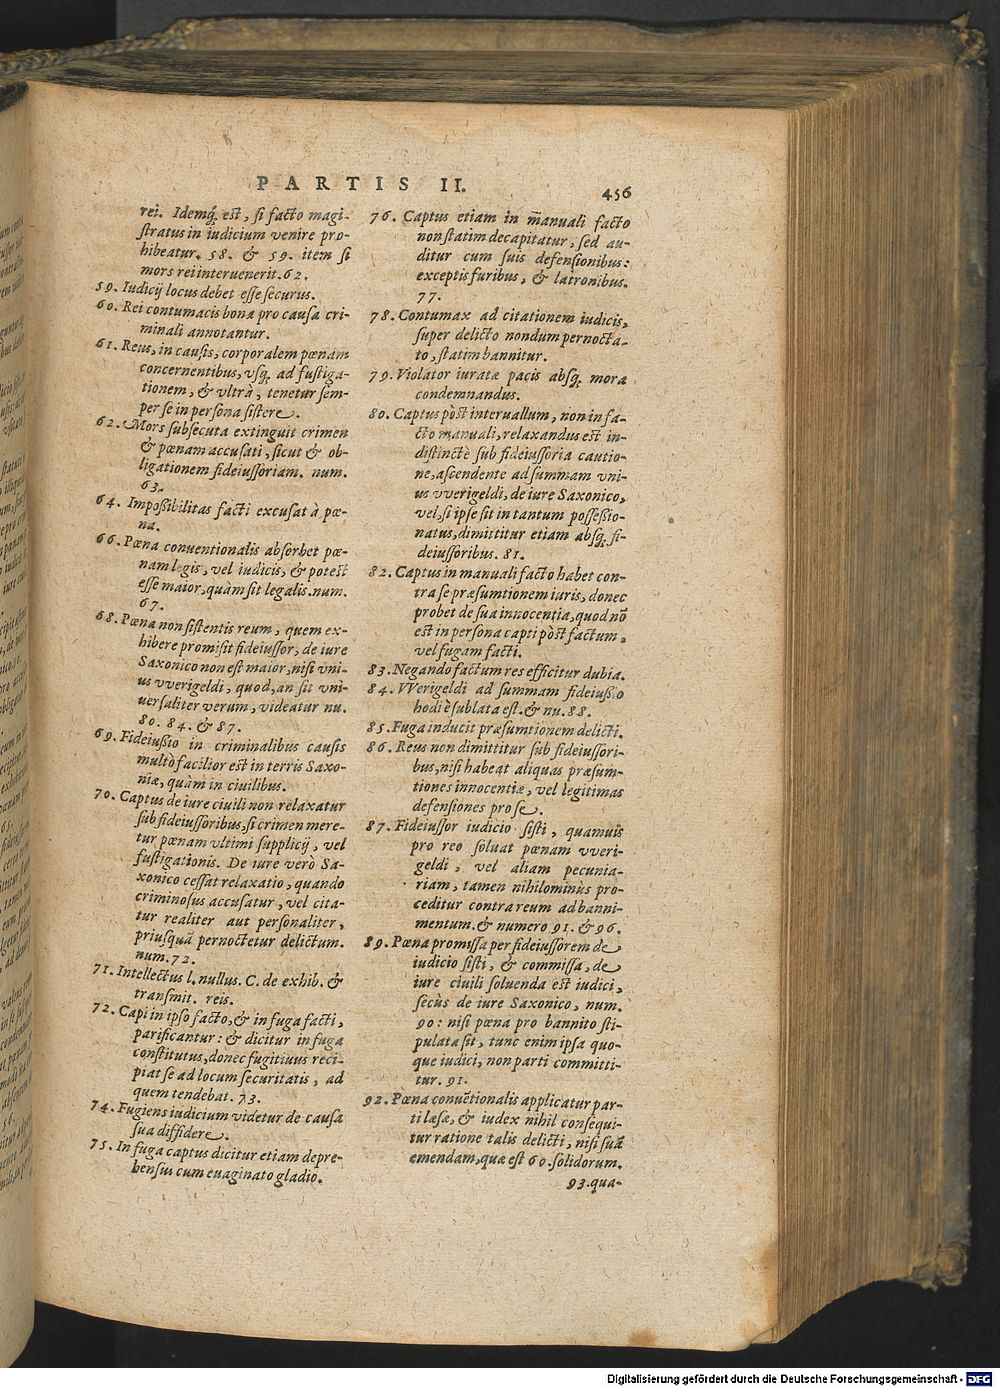 PARTIS II.
456
rei. Idemq́; est, si facto magi-
stratus in iudicium venire pro-
hibeatur. 58. & 59. item si
mors rei interuenerit. 62.
59. Iudicij locus debet esse securus.
60. Rei contumacis bona pro causa cri-
minali annotantur.
61. Reus, in causis, corporalem pœnam
concernentibus, vsq; ad fustiga-
tionem, & vltrà, tenetur sem-
per se in persona sistere.
62. Mors subsecuta extinguit crimen
& pœnam accusati, sicut & ob-
ligationem fideiussoriam. num.
63.
64. Impoßibilitas facti excusat à pœ-
na.
66. Pœna conuentionalis absorbet pœ-
nam legis, vel iudicis, & potest
esse maior, quàm sit legalis. num.
67.
68. Pœna non sistentis reum, quem ex-
hibere promisit fideiussor, de iure
Saxonico non est maior, nisi vni-
us vverigeldi, quod, an sit vni-
uersaliter verum, videatur nu.
80. 84. & 87.
69. Fideiußio in criminalibus causis
multò facilior est in terris Saxo-
niæ, quàm in ciuilibus.
70. Captus de iure ciuili non relaxatur
sub fideiussoribus, si crimen mere-
tur pœnam vltimi supplicij, vel
fustigationis. De iure verò Sa-
xonico cessat relaxatio, quando
criminosus accusatur, vel cita-
tur realiter aut personaliter,
priusquā pernoctetur delictum.
num. 72.
71. Intellectus l. nullus. C. de exhib. &
transmit. reis.
72. Capi in ipso facto, & in fuga facti,
parificantur: & dicitur in fuga
constitutus, donec fugitiuus reci-
piat se ad locum securitatis, ad
quem tendebat. 73.
74. Fugiens iudicium videtur de causa
sua diffidere.
75. In fuga captus dicitur etiam depre-
hensus cum euaginato gladio.
76. Captus etiam in m̄anuali facto
non statim decapitatur, sed au-
ditur cum suis defensionibus:
exceptis furibus, & latronibus.
77.
78. Contumax ad citationem iudicis,
super delicto nondum pernocta-
to, statim bannitur.
79. Violator iuratæ pacis absq; mora
condemnandus.
80. Captus pòst interuallum, non in fa-
cto manuali, relaxandus est in-
distinctè sub fideiussoria cautio-
ne, ascendente ad summam vni-
us vverigeldi, de iure Saxonico,
vel, si ipse sit in tantum possessio-
natus, dimittitur etiam absq; fi-
deiussoribus. 81.
82. Captus in manuali facto habet con-
tra se præsumtionem iuris, donec
probet de sua innocentia, quod nō
est in persona capti pòst factum,
vel fugam facti.
83. Negando factum res efficitur dubia.
84. VVerigeldi ad summam fideiußio
hodiè sublata est. & nu. 88.
85. Fuga inducit præsumtionem delicti.
86. Reus non dimittitur sub fideiussori-
bus, nisi habeat aliquas præsum-
tiones innocentiæ, vel legitimas
defensiones pro se.
87. Fideiussor iudicio sisti, quamuis
pro reo soluat pœnam vveri-
geldi, vel aliam pecunia-
riam, tamen nihilominùs pro-
ceditur contra reum ad banni-
mentum. & numero 91. & 96.
89. Pœna promissa per fideiussorem de
iudicio sisti, & commissa, de
iure ciuili soluenda est iudici,
secùs de iure Saxonico, num.
90: nisi pœna pro bannito sti-
pulata sit, tunc enim ipsa quo-
que iudici, non parti committi-
tur. 91.
92. Pœna conuētionalis applicatur par-
ti læsæ, & iudex nihil consequi-
tur ratione talis delicti, nisi suā
emendam, quæ est 60. solidorum.
93. qua-
Digitalisierung gefördert durch die Deutsche Forschungsgemeinschaft - DFG